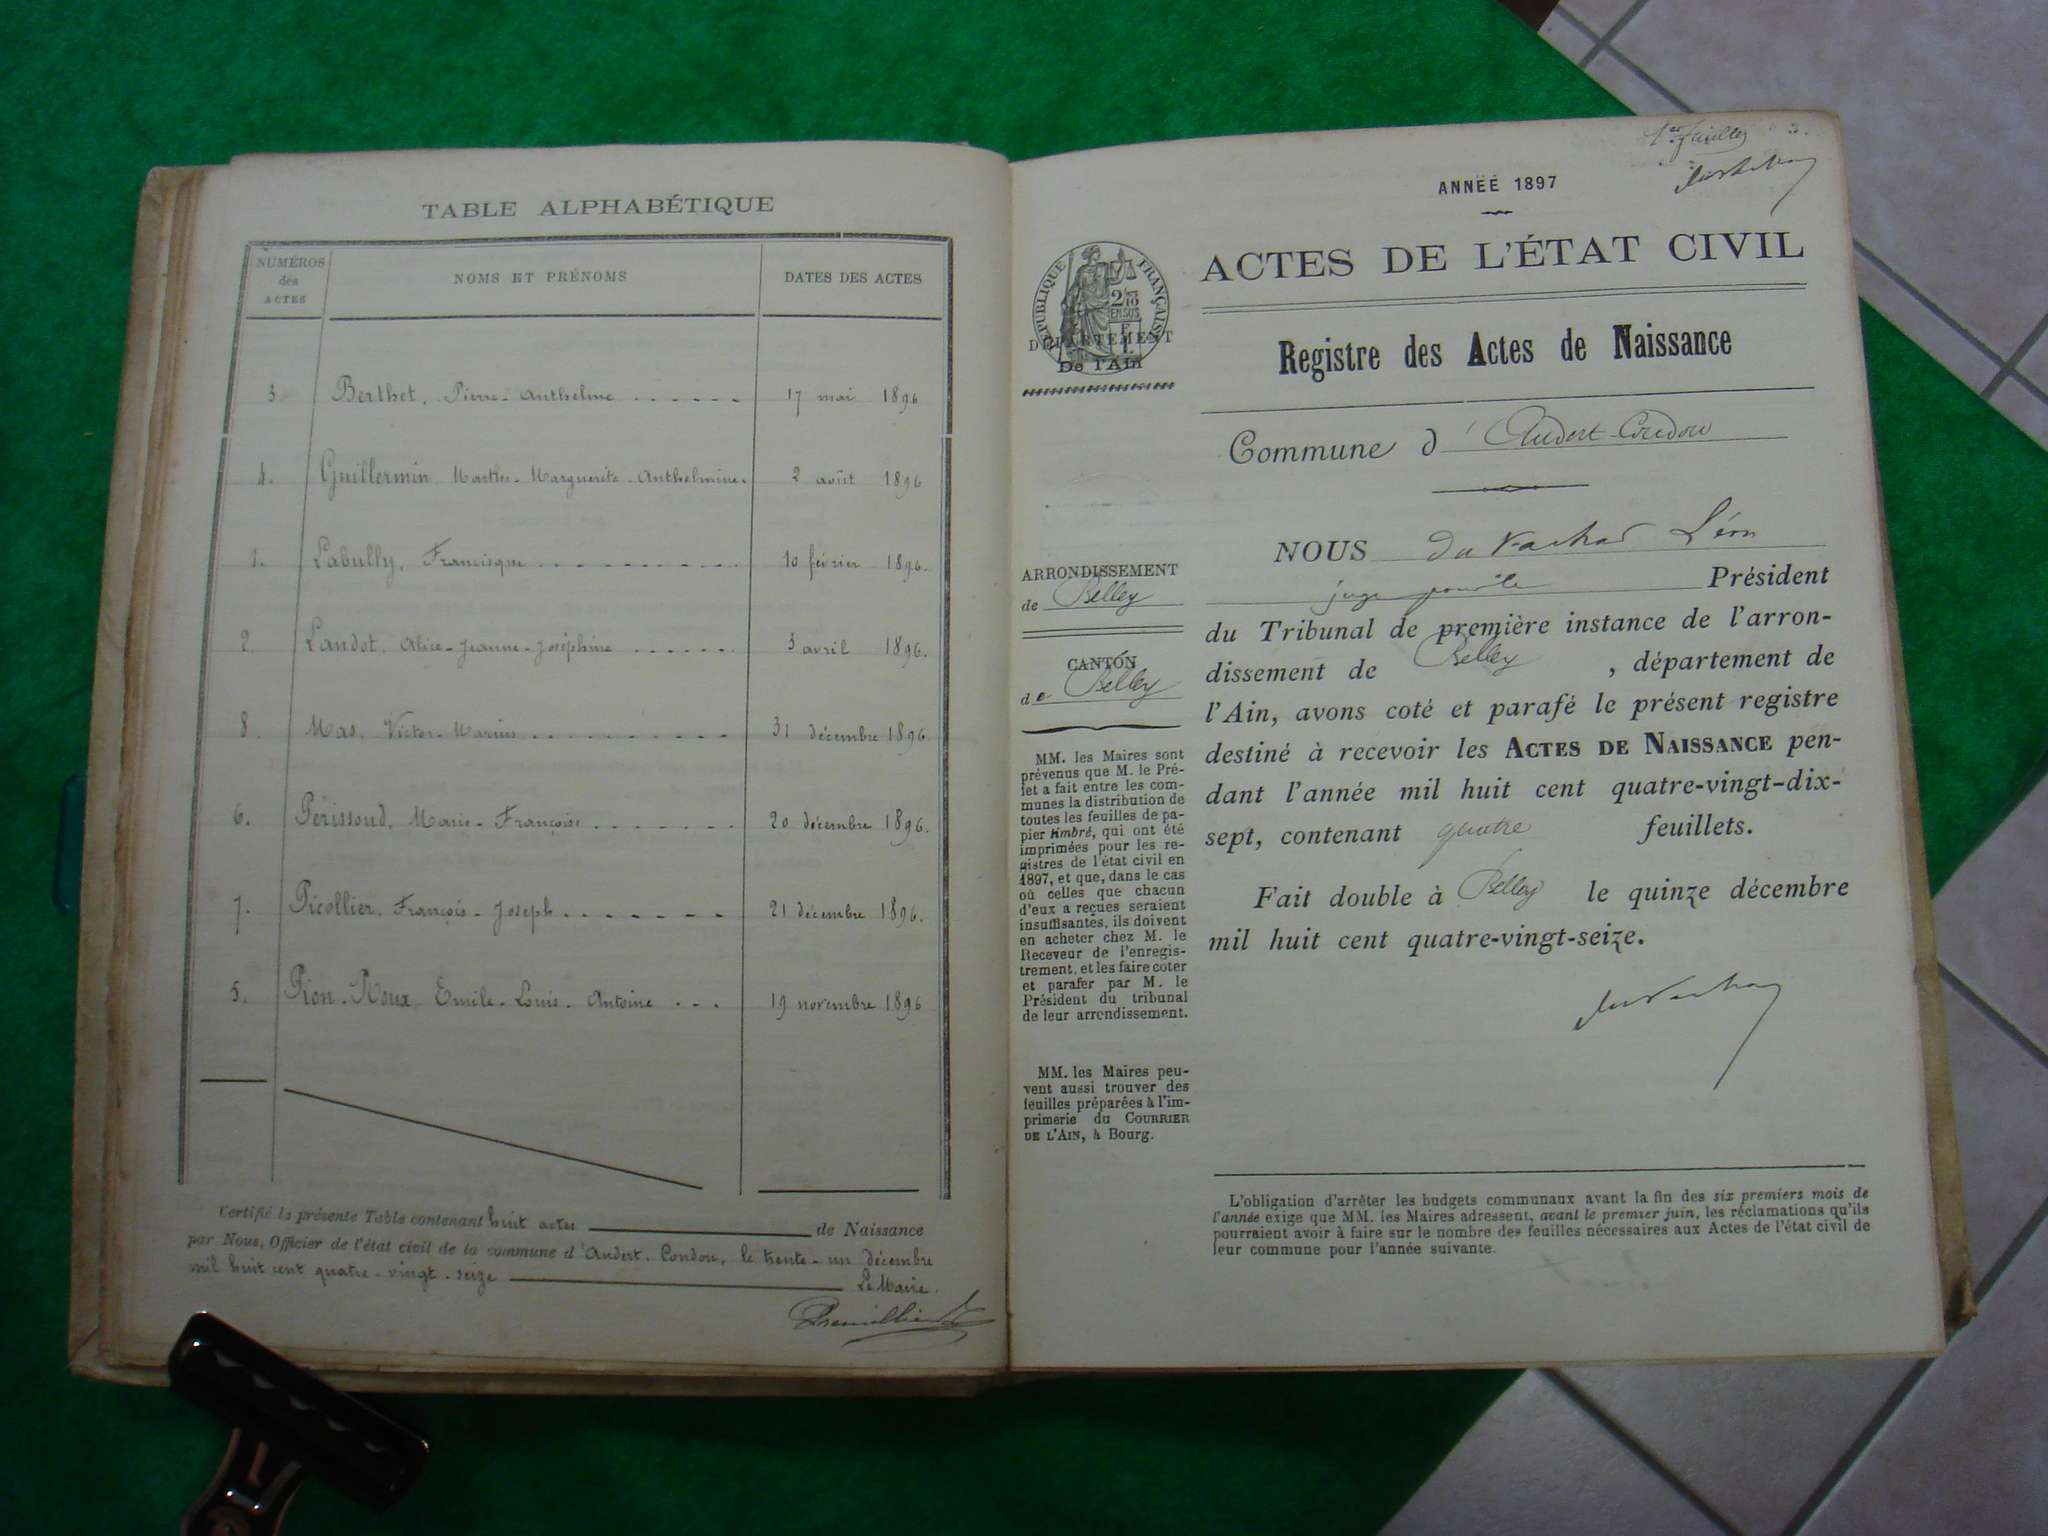 TABLE ALPHABÉTIQUE
NUMÉROS des ACTES NOMS ET PRÉNOMS DATES DES ACTES
3. Berthet, Pierre-Anthelme 17 mai 1896
4. Guillermin, Marthe-Marguerite-Anthelmine 2 août 1896
1. Labully, Francisque 10 février 1896.
2. Landot, Alice-Jeanne-Joséphine 3 avril 1896.
8. Mas, Victor-Marius 31 décembre 1896
6. Périssoud, Marie-Françoise 20 décembre 1896.
7. Picollier, François-Joseph 21 décembre 1896.
5. Pion-Roux, Emile-Louis-Antoine 19 novembre 1896
Certifié la présente Table contenant huit actes de Naissance
par Nous, Officier de l'état civil de la commune d'Andert-Condon, le trente-un décembre
mil huit cent quatre-vingt-seize Le Maire.
1er feuillet
ANNÉE 1897
ACTES DE L'ÉTAT CIVIL
RÉPUBLIQUE FRANÇAISE
2/10 EN SUS
DÉPARTEMENT
De l'Ain
Registre des Actes de Naissance
Commune d'Andert-Condon
ARRONDISSEMENT
de Belley
CANTON
de Belley
MM. les Maires sont
prévenus que M. le Pré-
fet a fait entre les com-
munes la distribution de
toutes les feuilles de pa-
pier timbré, qui ont été
imprimées pour les re-
gistres de l'état civil en
1897, et que, dans le cas
où celles que chacun
d'eux a reçues seraient
insuffisantes, ils doivent
en acheter chez M. le
Receveur de l'enregis-
trement, et les faire coter
et parafer par M. le
Président du tribunal
de leur arrondissement.
MM. les Maires peu-
vent aussi trouver des
feuilles préparées à l'im-
primerie du COURRIER
DE L'AIN, à Bourg.
NOUS du Vachat Léon
juge pour le Président
du Tribunal de première instance de l'arron-
dissement de Belley, département de
l'Ain, avons coté et parafé le présent registre
destiné à recevoir les ACTES DE NAISSANCE pen-
dant l'année mil huit cent quatre-vingt-dix-
sept, contenant quatre feuillets.
Fait double à Belley le quinze décembre
mil huit cent quatre-vingt-seize.
L'obligation d'arrêter les budgets communaux avant la fin des six premiers mois de
l'année exige que MM. les Maires adressent, avant le premier juin, les réclamations qu'ils
pourraient avoir à faire sur le nombre des feuilles nécessaires aux Actes de l'état civil de
leur commune pour l'année suivante.